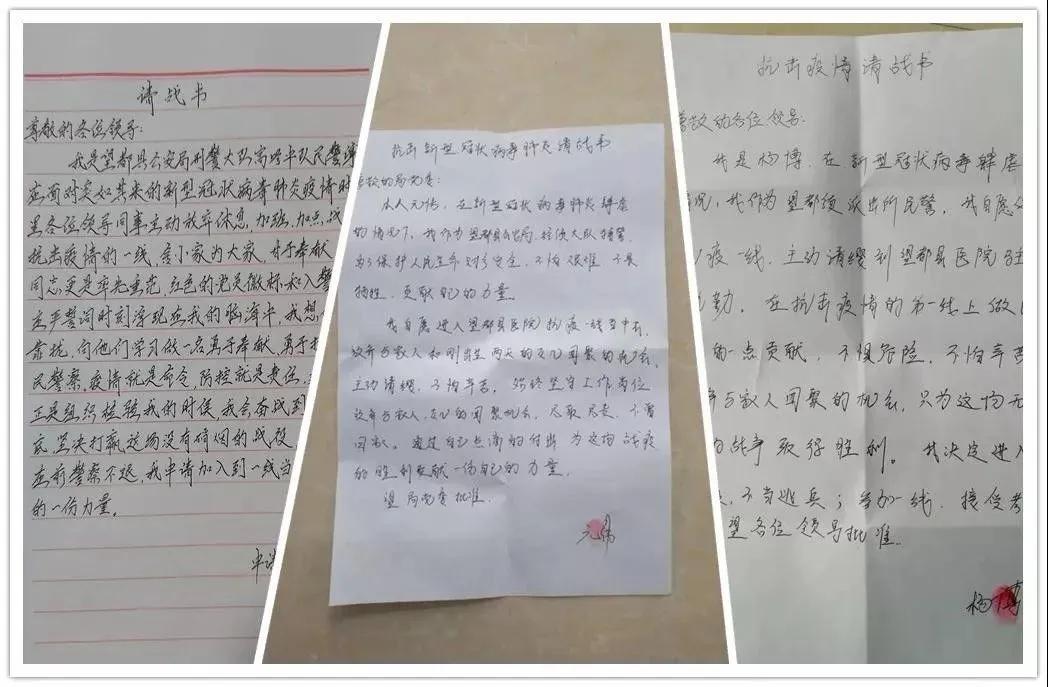 请战书
尊敬的各位领导:
我是望都县公安局刑警大队高岭中队民警
应面对突如其来的新型冠状病毒肺炎疫情时
各位领导同事主动放弃休息,加班,加点,战
抗击疫情的一线,舍小家为大家,甘于奉献
同志更是率先垂范,红色的党员徽标和入警
庄严誓词时刻浮现在我的脑海中,我想
靠拢,向他们学习做一名勇于奉献,勇于
民警察,疫情就是命令 防控就是责任,
正是组织检验我们的时候,我会奋战到
底,坚决打赢这场没有硝烟的战役,
在前警察不退,我申请加入到一线当
的一份力量。
申请
抗击新型冠状病毒肺炎请战书
尊敬的局党委:
本人元伟,在新型冠状病毒肺炎肆虐
的情况下,我作为望都县公安局 大队
为了保护人民生命财产安全,不怕艰难 不畏
牺牲,贡献自己的力量。
我自愿进入望都县医院抗疫一线当中去,
放弃与家人和刚出生两天的女儿团聚的机会,
主动请缨,不怕辛苦,始终坚守工作岗位
放弃与家人,女儿的团聚机会,尽职尽责,不需
回报。通过自己点滴的付出 为这场战疫
的胜利贡献一份自己的力量。
望局党委批准。
元伟
抗击疫情请战书
尊敬的各位领导:
我是杨博,在新型冠状病毒肆虐
情况,我作为望都镇派出所民警,我自愿
疫一线,主动请缨到望都县医院
勤,在抗击疫情的第一线上做
的一点贡献,不惧危险,不怕辛苦
弃与家人团聚的机会,只为这场无
的战争取得胜利。我决定进入
,不当逃兵;参加一线,接受考
望各位领导批准。
杨博